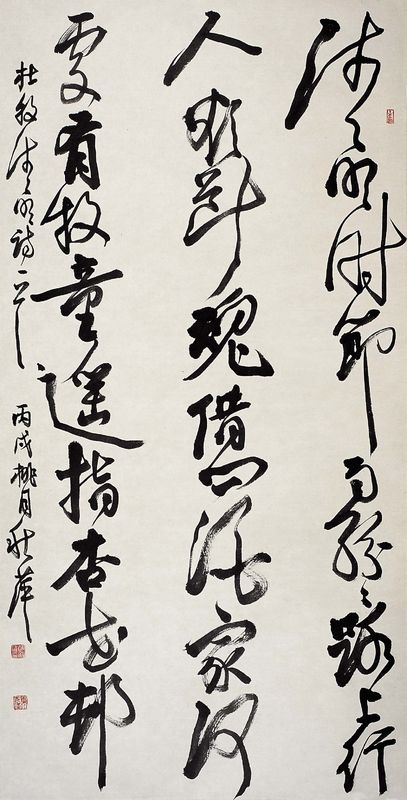 清明时節雨紛紛路上行
人欲断魂借问酒家何
處有牧童遥指杏花邨
杜牧清明诗一首 丙戌桃月